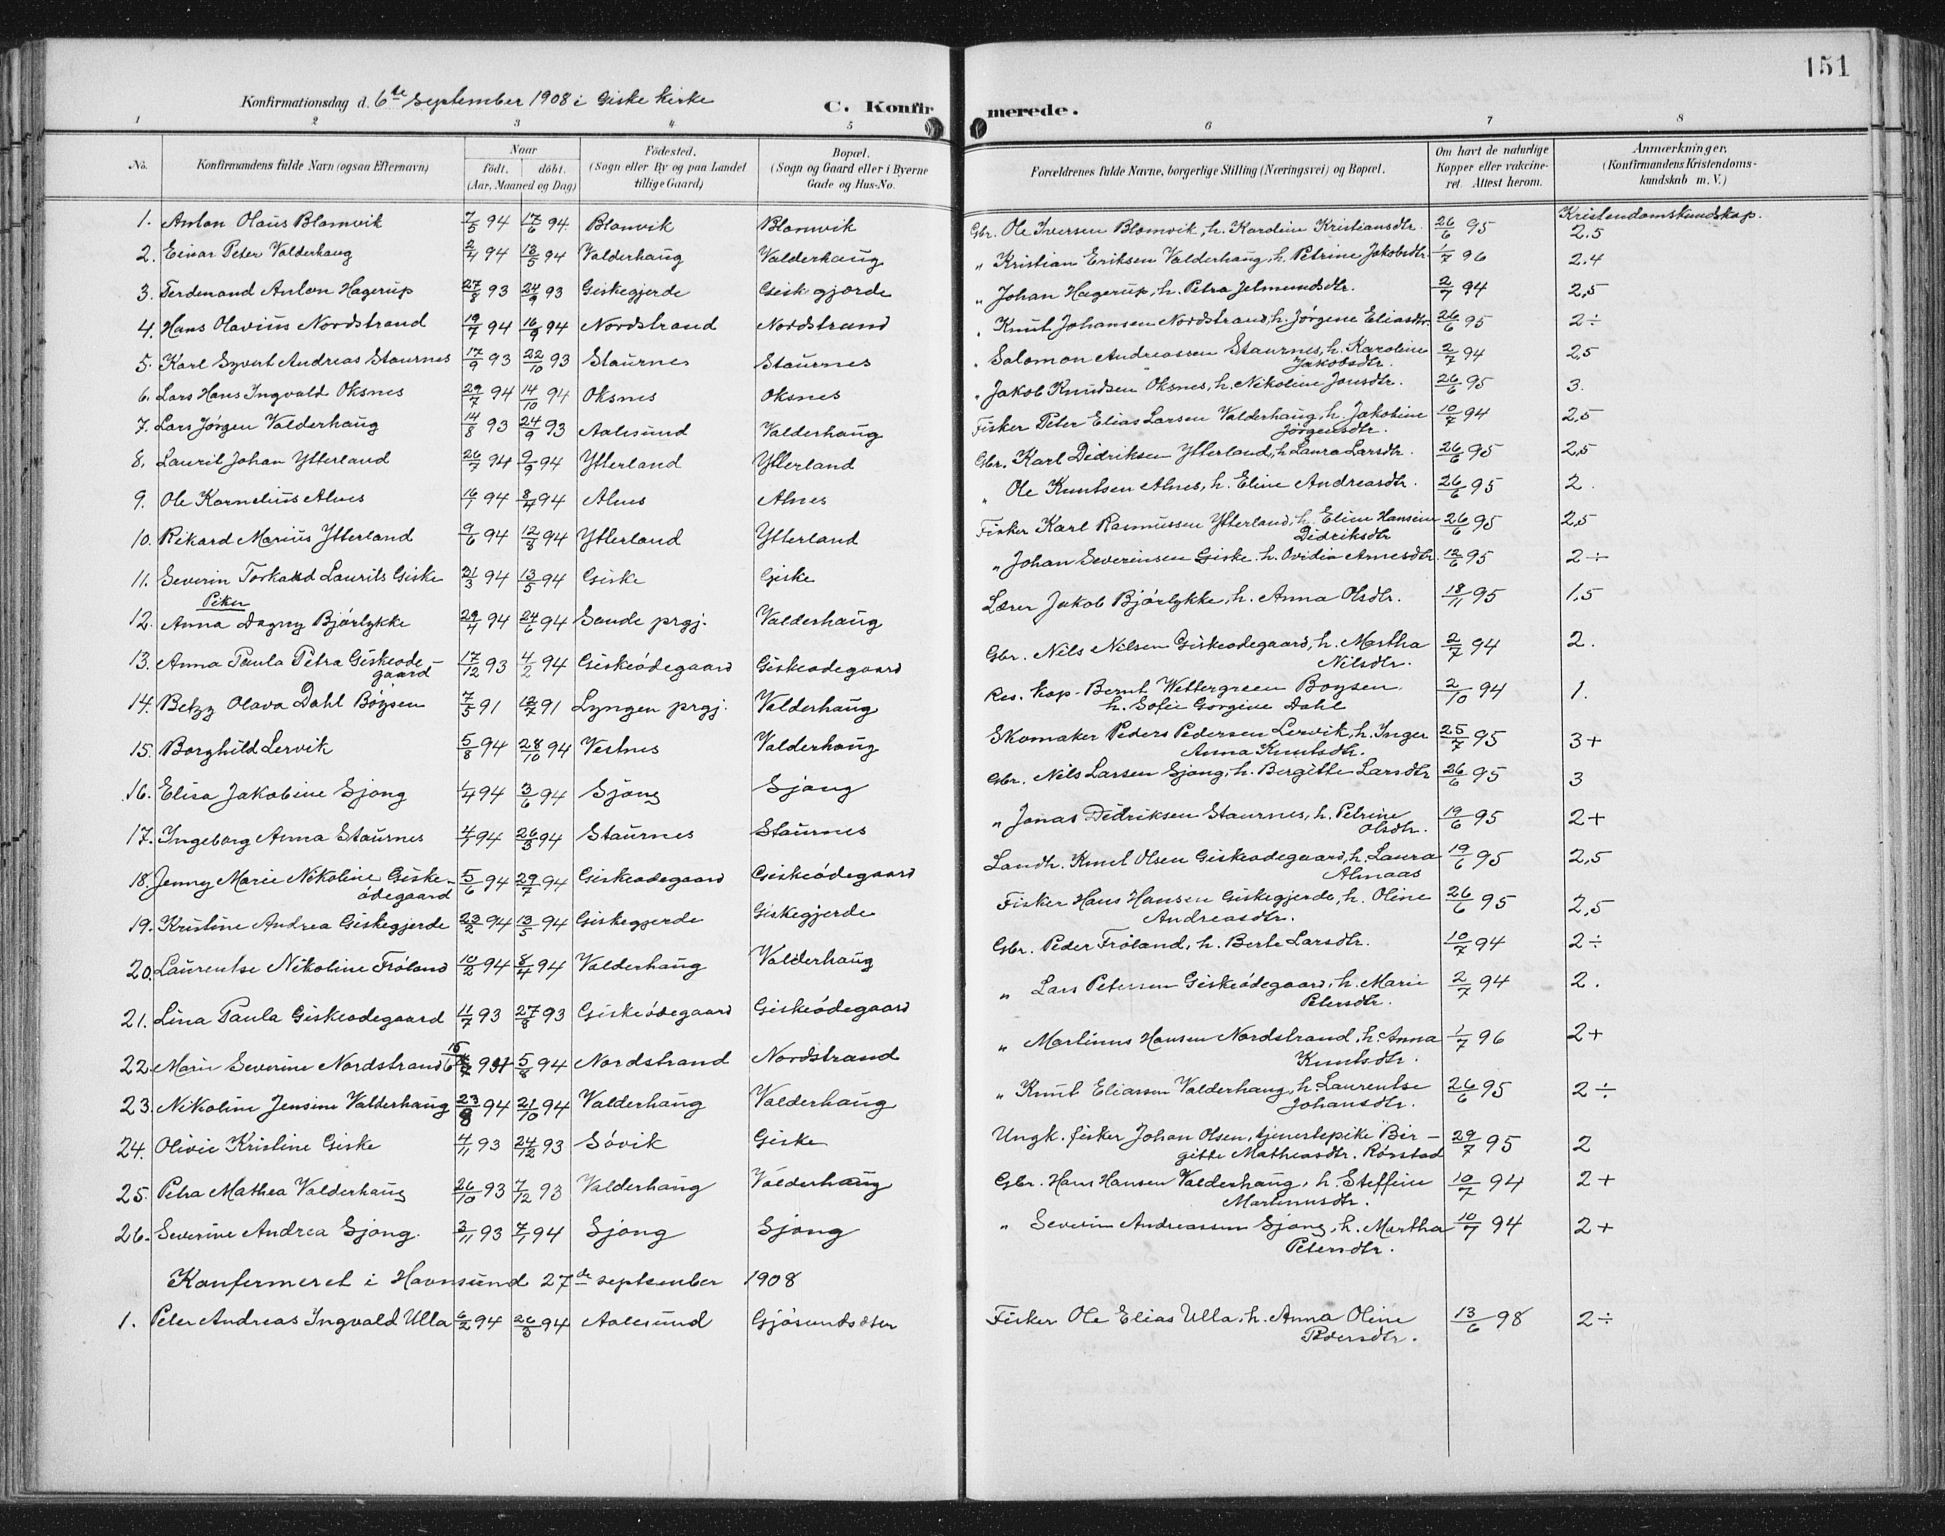 151
Konfirmationsdag d. 6te September 1908 i Giske kirke
C. Konfirmerede.
1 2 3 4 5 6 7 8
No. Konfirmandens fulde Navn (ogsaa Efternavn) Naar födt. döbt. (Aar, Maaned og Dag) Födested. (Sogn eller By og paa Landet tillige Gaard) Bopæl. (Sogn og Gaard eller i Byerne Gade og Hus-No. Forældrenes fulde Navne, borgerlige Stilling (Næringsvei) og Bopæl. Om havt de naturlige Kopper eller vakcineret. Attest herom. Anmærkninger, (Konfirmandens Kristendomskundskab m. V.)
Kristendomskundskap.
1. Anton Olaus Blomvik 7/5 94 17/6 94 Blomvik Blomvik Gbr. Ole Iversen Blomvik, h. Karoline Kristiansdtr. 26/6 95 2.5
2. Einar Peter Valderhaug 2/4 94 13/5 94 Valderhaug Valderhaug " Kristian Eriksen Valderhaug, h. Petrine Jakobsdtr. 1/7 96 2.4
3. Ferdinand Anton Hagerup 27/8 93 24/9 93 Giskegjerde Giskegjerde " Johan Hagerup, h. Petra Jetmundsdtr. 2/7 94 2,5
4. Hans Olavius Nordstrand 19/7 94 16/9 94 Nordstrand Nordstrand " Knut Johansen Nordstrand, h. Jørgine Eliasdtr. 26/6 95 2÷
5. Karl Syvert Andreas Staurnes 17/9 93 22/10 93 Staurnes Staurnes " Salomon Andreassen Staurnes, h. Karoline Jakobsdtr. 2/7 94 2,5
6. Lars Hans Ingvald Oksnes 29/7 94 14/10 94 Oksnes Oksnes " Jakob Knudsen Oksnes, h. Nikoline Jonsdtr. 26/6 95 3.
7. Lars Jørgen Valderhaug 14/8 93 24/9 93 Aalesund Valderhaug Fisker Peter Elias Larsen Valderhaug, h. Jakobine Jörgensdtr. 10/7 94 2,5
8. Laurit Johan Ytterland 26/7 94 9/9 94 Ytterland Ytterland Gbr. Karl Didriksen Ytterland, h. Laura Larsdtr. 26/6 95 2,5
9. Ole Kornelius Alnes 16/1 94 8/4 94 Alnes Alnes " Ole Knutsen Alnes, h. Eline Andreasdtr. 26/6 95 2.
10. Rikard Marius Ytterland 9/6 94 12/8 94 Ytterland Ytterland Fisker Karl Rasmussen Ytterland, h. Eline Hansine Didriksdtr 26/6 95 2,5
11. Severin Laurits Giske 21/3 94 13/5 94 Giske Giske " Johan Severinsen Giske h. Ovidia Arnesdtr. 12/6 95 2÷
Piker
12. Anna Dagny Bjørlykke 29/4 94 24/6 94 Sande prgj. Valderhaug Lærer Jakob Bjørlykke, h. Anna Olsdtr. 18/11 95 1,5
13. Anna Paula Petra Giskeødegaard 17/12 93 4/2 94 Giskeødegaard Giskeødegaard Gbr. Nils Nilsen Giskeødegaard, h. Martha Nilsdtr. 2/7 94 2.
14. Betzy Olava Dahl Böysen 7/5 91 12/7 91 Lyngen prgj. Valderhaug Res. kap. Bernt Wettergreen Boysen h. Sofie Gorgine Dahl 2/10 94 1.
15. Borghild Lervik 5/8 94 28/10 94 Vestnes Valderhaug Skomaker Peders Pedersen Lervik, h. Inger Anna Knutsdtr. 25/7 95 3+
16. Elisa Jakobine Sjong 1/4 94 3/6 94 Sjong Sjong Gbr. Nils Larsen Sjong, h. Bergitte Larsdtr 26/6 95 3
17. Ingeborg Anna Staurnes 4/1 94 26/3 94 Staurnes Staurnes " Jonas Didriksen Staurnes, h. Petrine Olsdtr. 19/6 95 2+
18. Jenny Marie Nikoline Giskeødegaard 5/6 94 29/7 94 Giskeødegaard Giskeødegaard Landh. Knut Olsen Giskeødegaard, h. Laura Almaas 19/6 95 2,5
19. Kristine Andrea Giskegjerde 23/2 94 13/5 94 Giskegjerde Giskegjerde Fisker Hans Hansen Giskegjerde, h. Oline Andreasdtr. 26/6 95 2,5
20. Laurentse Nikoline Frøland 10/2 94 8/4 94 Valderhaug Valderhaug Gbr. Peder Frøland, h. Berte Larsdtr. 10/7 94 2÷
21. Lina Paula Giskeødegaard 11/7 93 27/8 93 Giskeødegaard Giskeødegaard " Lars Petersen Giskeødegaard, h. Marie Petersdtr. 2/7 94 2.
22. Marie Severine Nordstrand 94 5/8 94 Nordstrand Nordstrand " Martinus Hansen Nordstrand, h. Anna Knutsdtr. 1/7 96 2+
23. Nikoline Jensine Valderhaug 23/8 94 21/10 94 Valderhaug Valderhaug " Knut Eliassen Valderhaug, h. Laurentse Johansdtr. 26/6 95 2÷
24. Olivie Kristine Giske 4/11 93 24/12 93 Søvik Giske Ungk. fisker Johan Olsen, tjenestepike Birgitte Mathiasdtr. Rønstad 29/7 95 2
25. Petra Mathea Valderhaug 26/10 93 7/12 93 Valderhaug Valderhaug Gbr. Hans Hansen Valderhaug, h. Steffine Martinusdtr. 10/7 94 2+
26. Severine Andrea Sjong. 3/11 93 7/1 94 Sjong Sjong " Severin Andreassen Sjong, h. Martha Petersdtr. 10/7 94 2+
Konfermeret i Havnsund 27de september 1908
1. Peter Andreas Ingvald Ulla 6/2 94 26/3 94 Aalesund Gjøsundsæter Fisker Ole Elias Ulla, h. Anna Oline Pedersdtr. 13/6 98 2÷